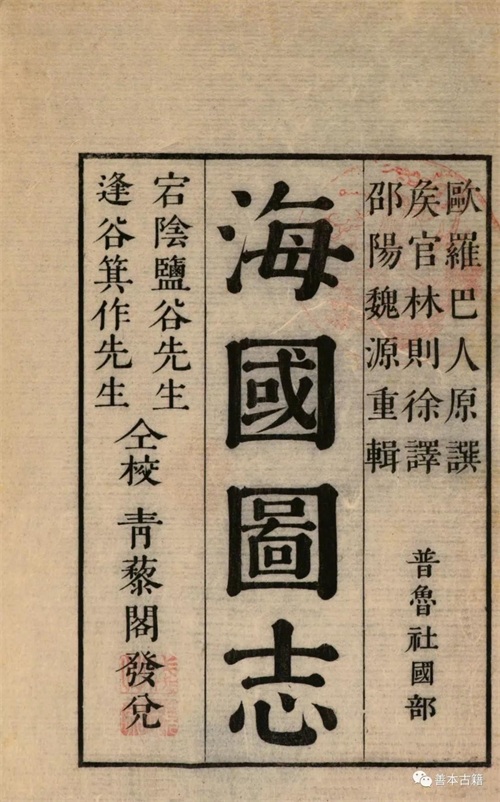 歐羅巴人原譔
矦官林則徐譯
邵陽魏源重輯
普魯社國部
海國圖志
宕陰鹽谷先生
逢谷箕作先生
仝校
青藜閣發兌
善本古籍